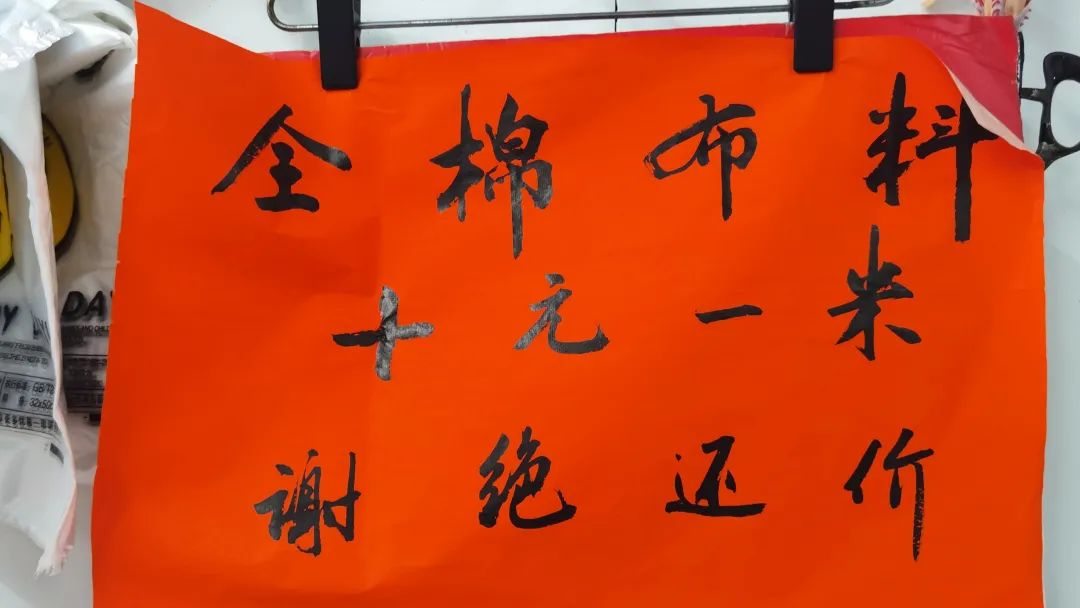 全棉布料
十元一米
谢绝还价
DAY
GB/T
32x50